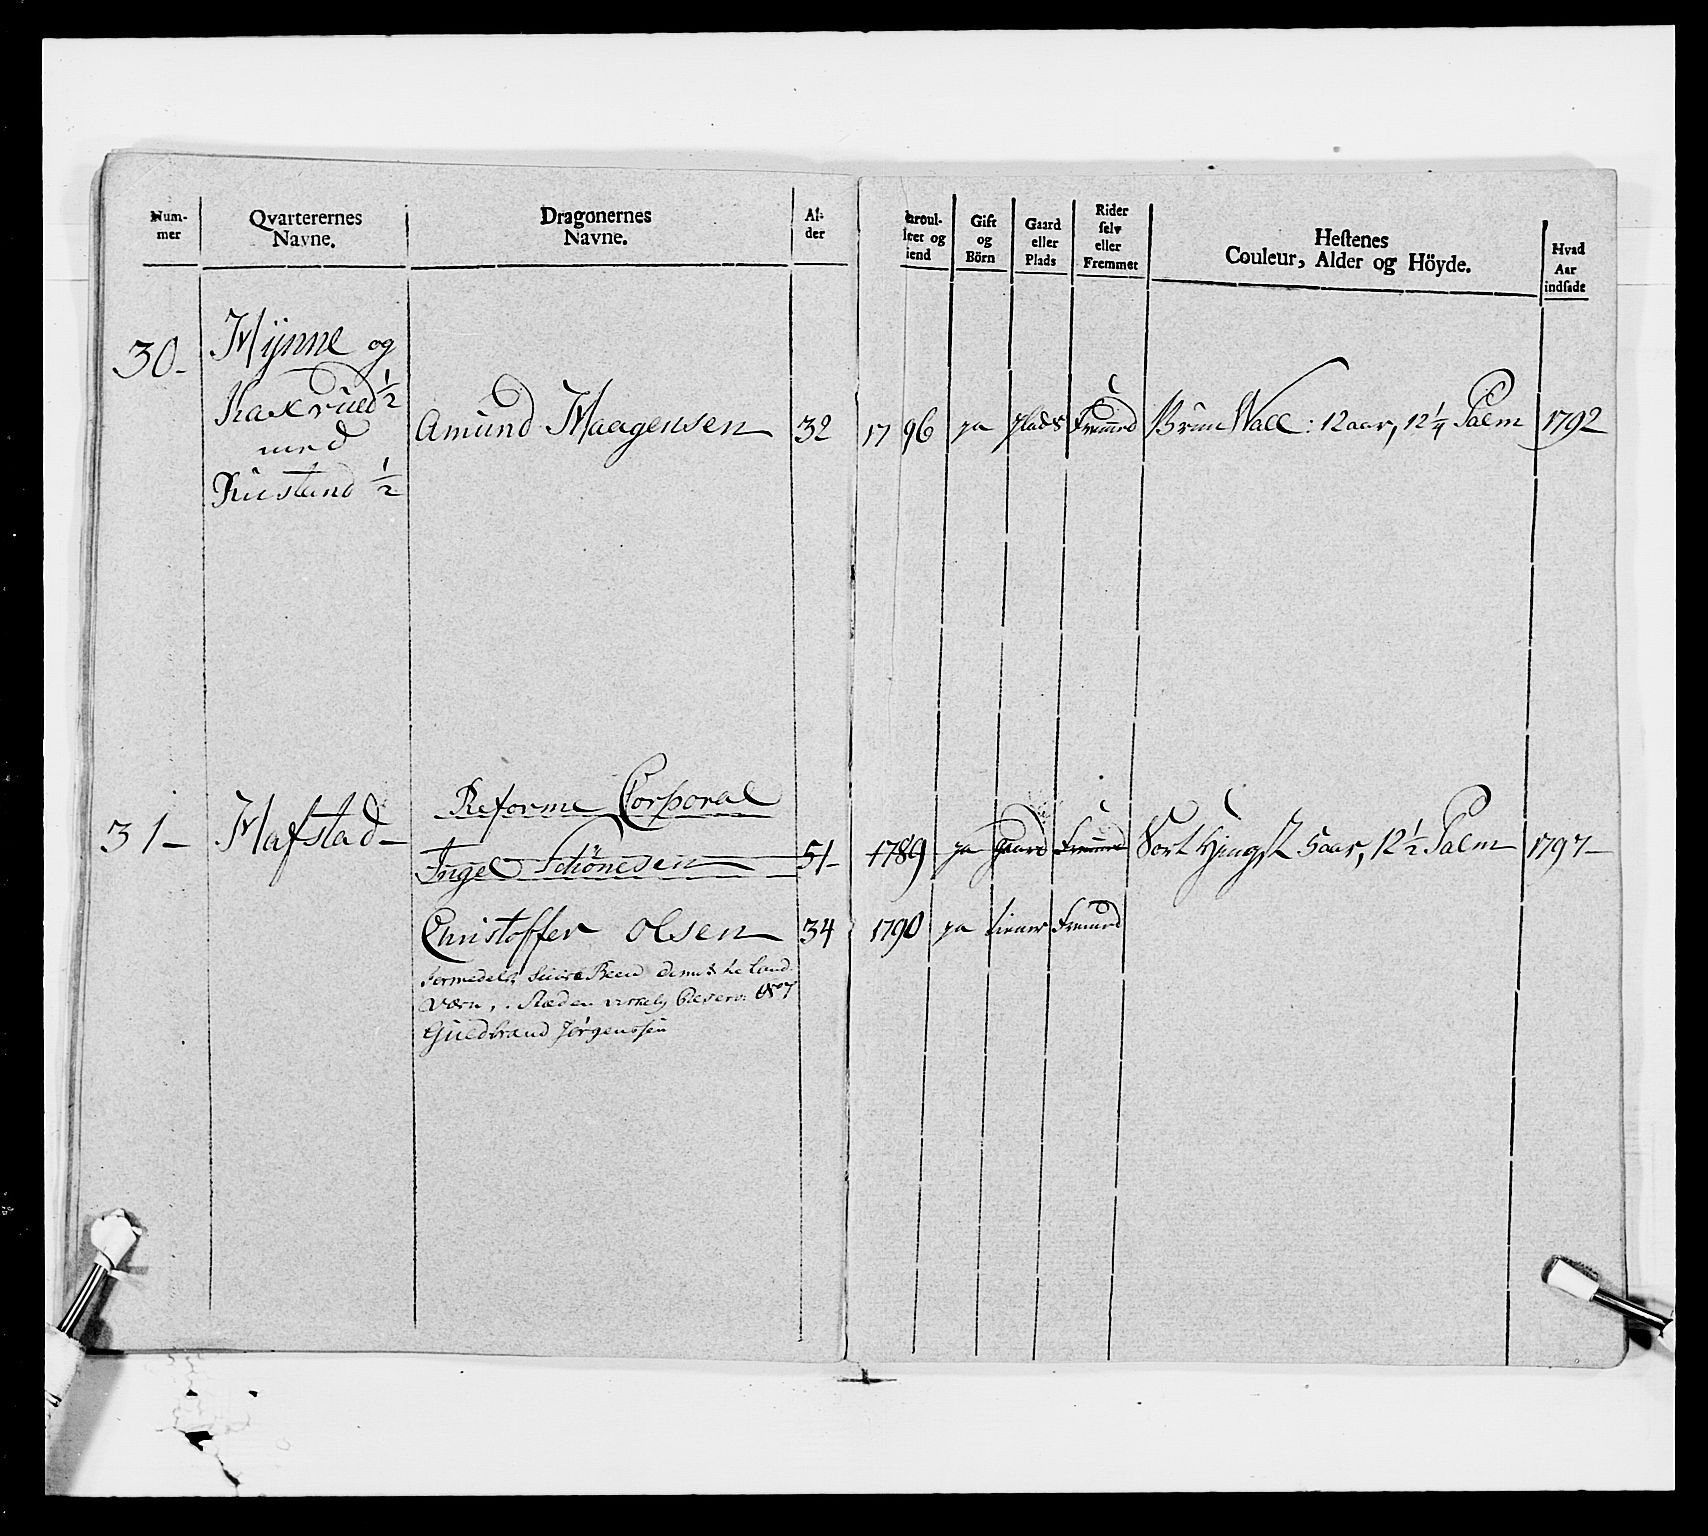 Num-
mer
Qvarterernes
Navne.
Dragonernes
Navne.
Al-
der
nroul-
leret og
tiend
Gift
og
Börn
Gaard
eller
Plads
Rider
selv
eller
Fremmet
Hestenes
Couleur, Alder og Höyde.
Hvad
Aar
indsade
30-
Hÿnne og
Kaxrued ½
med
½
Amund Haagensen 32 1796 ja plads Fremed Brun Wall: 12 aar, 12 ¼ Palm 1792
31- Hafstad-
Reforme Corporal
Ingel Schönesen 51- 1789 ja gaard Fremed Sort Hingst 5 aar, 12 ½ Palm 1797-
Christoffer Olsen 34 1790 ja Fremed
formedelst Been Land-
Værn, Steden 1807
Guldbrand Jørgenssen